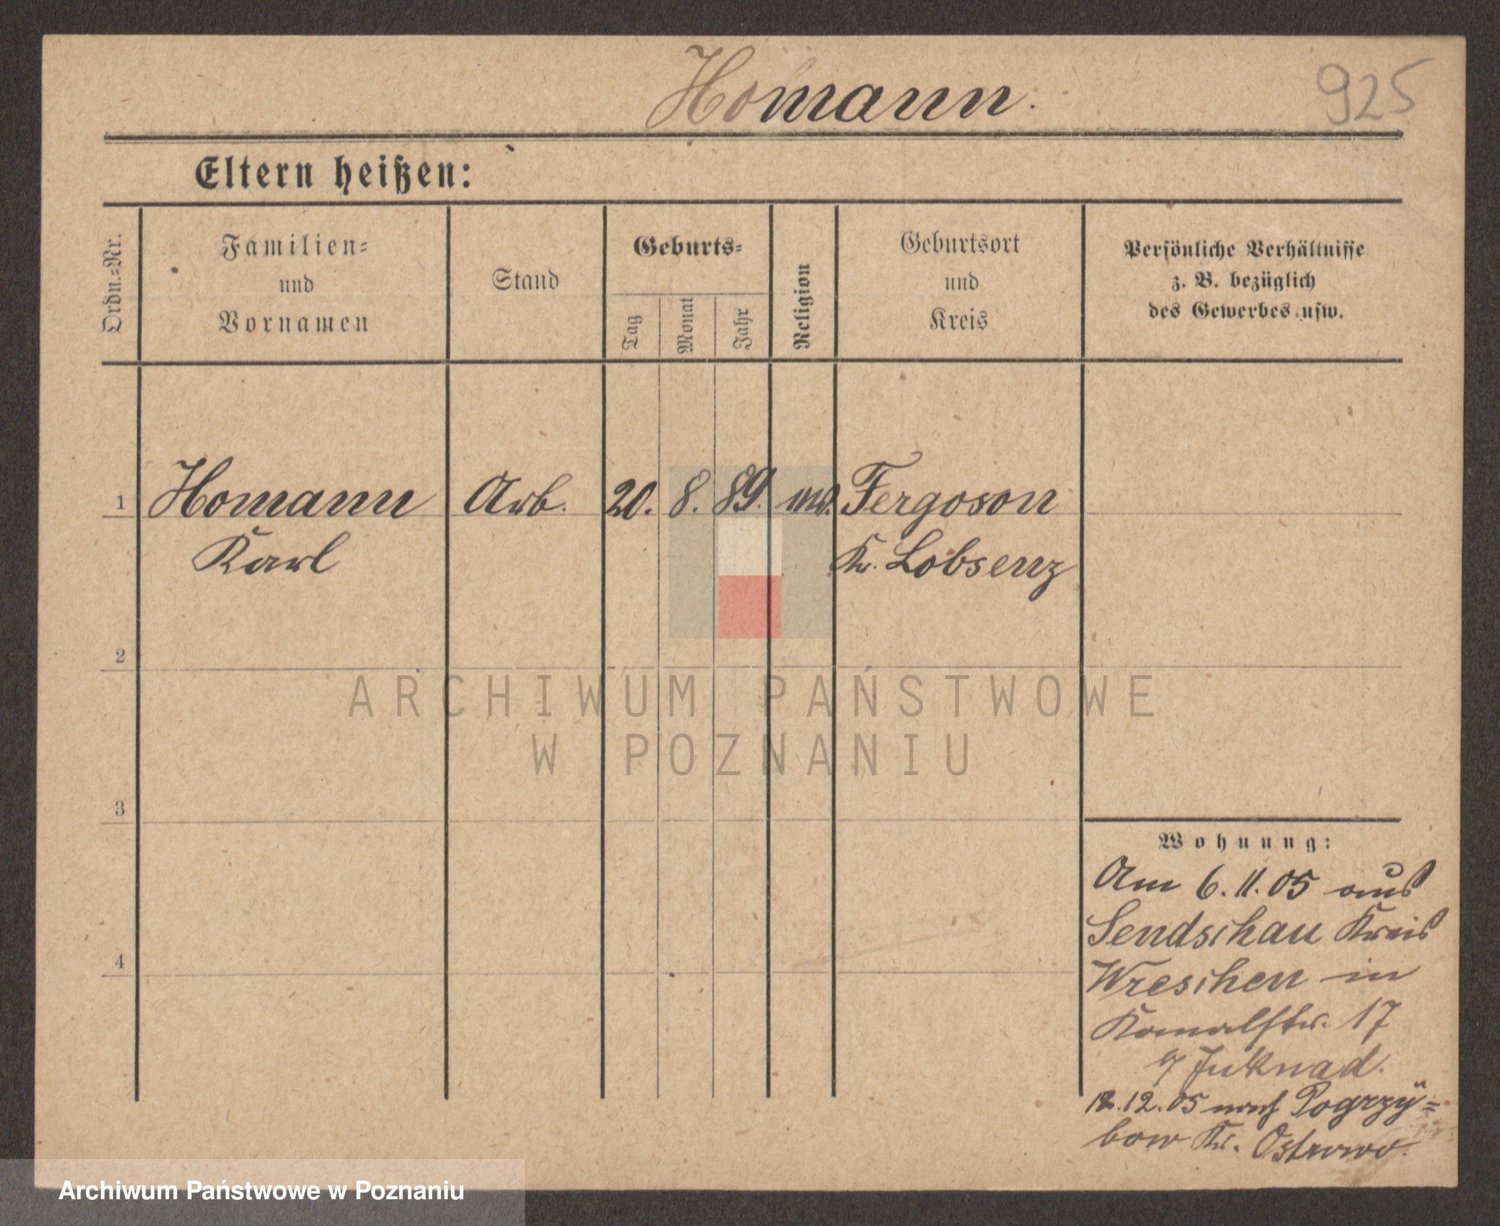 Homann.
925
Eltern heißen:
Ordn.=Nr.
Familien=
und
Vornamen
Stand
Geburts=
Tag
Monat
Jahr
Religion
Geburtsort
und
Kreis
Persönliche Verhältnisse
z. B. bezüglich
des Gewerbes usw.
1 Homann Arb. 20. 8. 89. Fergoson
Karl Kr. Lobsenz
2
3
4
ARCHIWUM PAŃSTWOWE
W POZNANIU
Wohnung:
Am 6.11.05 aus
Sendschau Kreis
Wreschen in
Kanalstr. 17
12.05 nach Pogrzÿ=
bow Kr. Ostrowo.
Archiwum Państwowe w Poznaniu